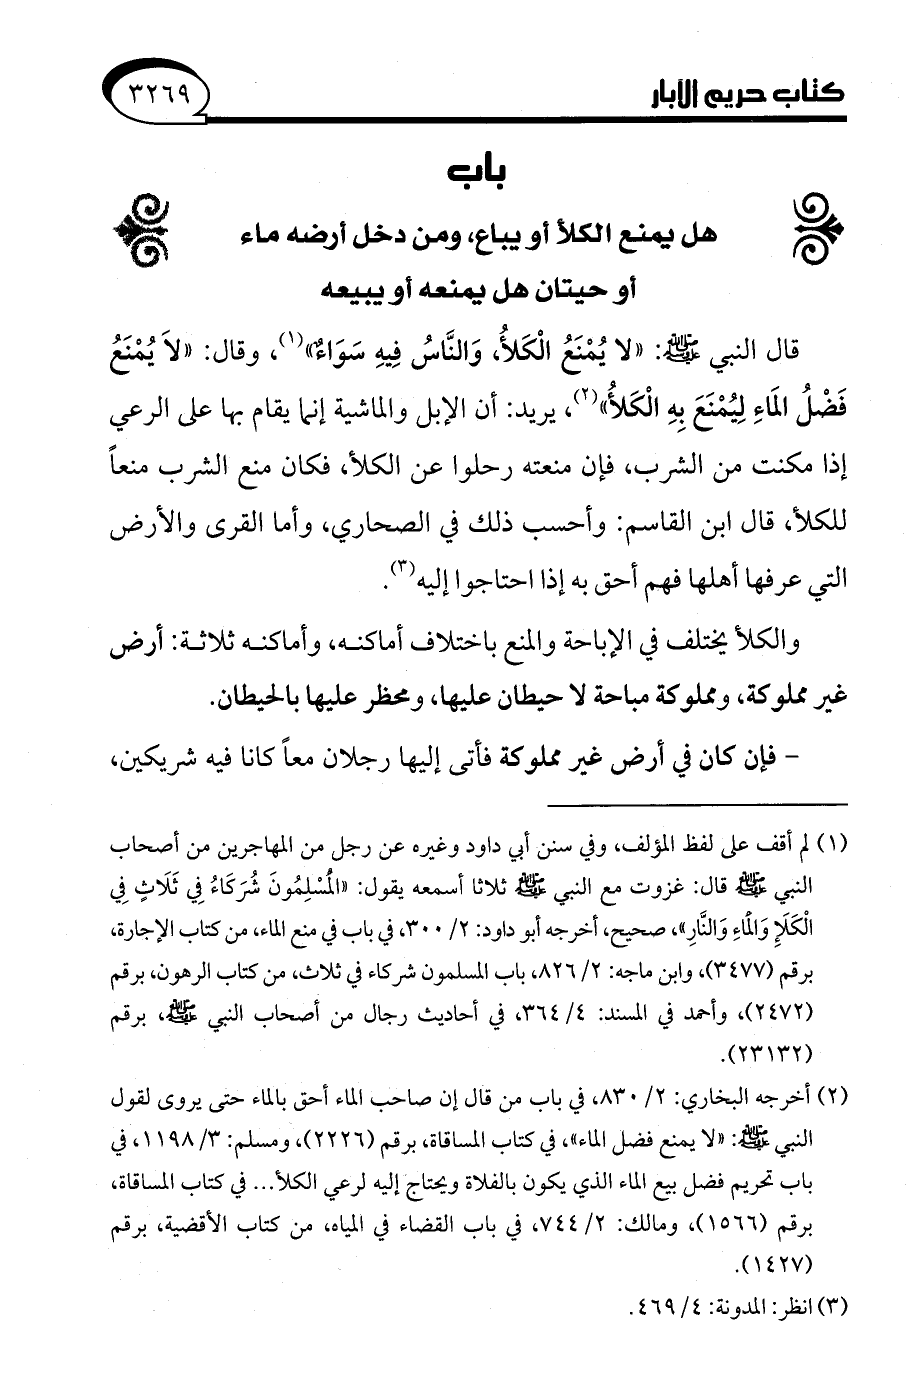 كتاب حريم الآبار
٣٢٦٩
باب
هل يمنع الكلأ أو يباع، ومن دخل أرضه ماء
أو حيتان هل يمنعه أو يبيعه
قال النبي ﷺ: «لا يُمْنَعُ الْكَلأُ، وَالنَّاسُ فِيهِ سَوَاءٌ»(١)، وقال: «لاَ يُمْنَعُ
فَضْلُ المَاءِ لِيُمْنَعَ بِهِ الْكَلأُ»(٢)، يريد: أن الإبل والماشية إنما يقام بها على الرعي
إذا مكنت من الشرب، فإن منعته رحلوا عن الكلأ، فكان منع الشرب منعاً
للكلأ، قال ابن القاسم: وأحسب ذلك في الصحاري، وأما القرى والأرض
التي عرفها أهلها فهم أحق به إذا احتاجوا إليه(٣).
والكلأ يختلف في الإباحة والمنع باختلاف أماكنه، وأماكنه ثلاثة: أرض
غير مملوكة، ومملوكة مباحة لا حيطان عليها، ومحظر عليها بالحيطان.
- فإن كان في أرض غير مملوكة فأتى إليها رجلان معاً كانا فيه شريكين،
(١) لم أقف على لفظ المؤلف، وفي سنن أبي داود وغيره عن رجل من المهاجرين من أصحاب
النبي ﷺ قال: غزوت مع النبي ﷺ ثلاثا أسمعه يقول: «المُسْلِمُونَ شُرَكَاءُ فِي ثَلَاثٍ فِي
الْكَلَإِ وَالْمَاءِ وَالنَّارِ»، صحيح، أخرجه أبو داود: ٢/ ٣٠٠، في باب في منع الماء، من كتاب الإجارة،
برقم (٣٤٧٧)، وابن ماجه: ٢/ ٨٢٦، باب المسلمون شركاء في ثلاث، من كتاب الرهون، برقم
(٢٤٧٢)، وأحمد في المسند: ٤/ ٣٦٤، في أحاديث رجال من أصحاب النبي ﷺ، برقم
(٢٣١٣٢).
(٢) أخرجه البخاري: ٢/ ٨٣٠، في باب من قال إن صاحب الماء أحق بالماء حتى يروى لقول
النبي ﷺ: «لا يمنع فضل الماء»، في كتاب المساقاة، برقم (٢٢٢٦)، ومسلم: ٣/ ١١٩٨، في
باب تحريم فضل بيع الماء الذي يكون بالفلاة ويحتاج إليه لرعي الكلأ... في كتاب المساقاة،
برقم (١٥٦٦)، ومالك: ٢/ ٧٤٤، في باب القضاء في المياه، من كتاب الأقضية، برقم
(١٤٢٧).
(٣) انظر: المدونة: ٤/ ٤٦٩.